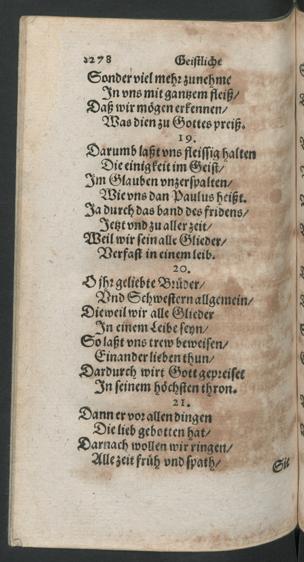 1278 Geistliche
Sonder viel mehr zunehme
In vns mit gantzem fleiß/
Daß wir mögen erkennen/
Was dien zu Gottes preiß.
19.
Darumb laßt vns fleissig halten
Die einigkeit im Geist/
Im Glauben vnzerspalten/
Wie vns dan Paulus heißt.
Ja durch das band des fridens/
Jetzt vnd zu aller zeit/
Weil wir sein alle Glieder/
Verfast in einem leib.
20.
O jhr geliebte Brüder/
Vnd Schwestern allgemein/
Dieweil wir alle Glieder
In einem Leibe seyn/
So laßt vns trew beweisen/
Einander lieben thun/
Dardurch wirt Gott gepreiset
In seinem höchsten thron.
21.
Dann er vor allen dingen
Die lieb gebotten hat/
Darnach wollen wir ringen/
Alle zeit früh vnd spath/
Sie